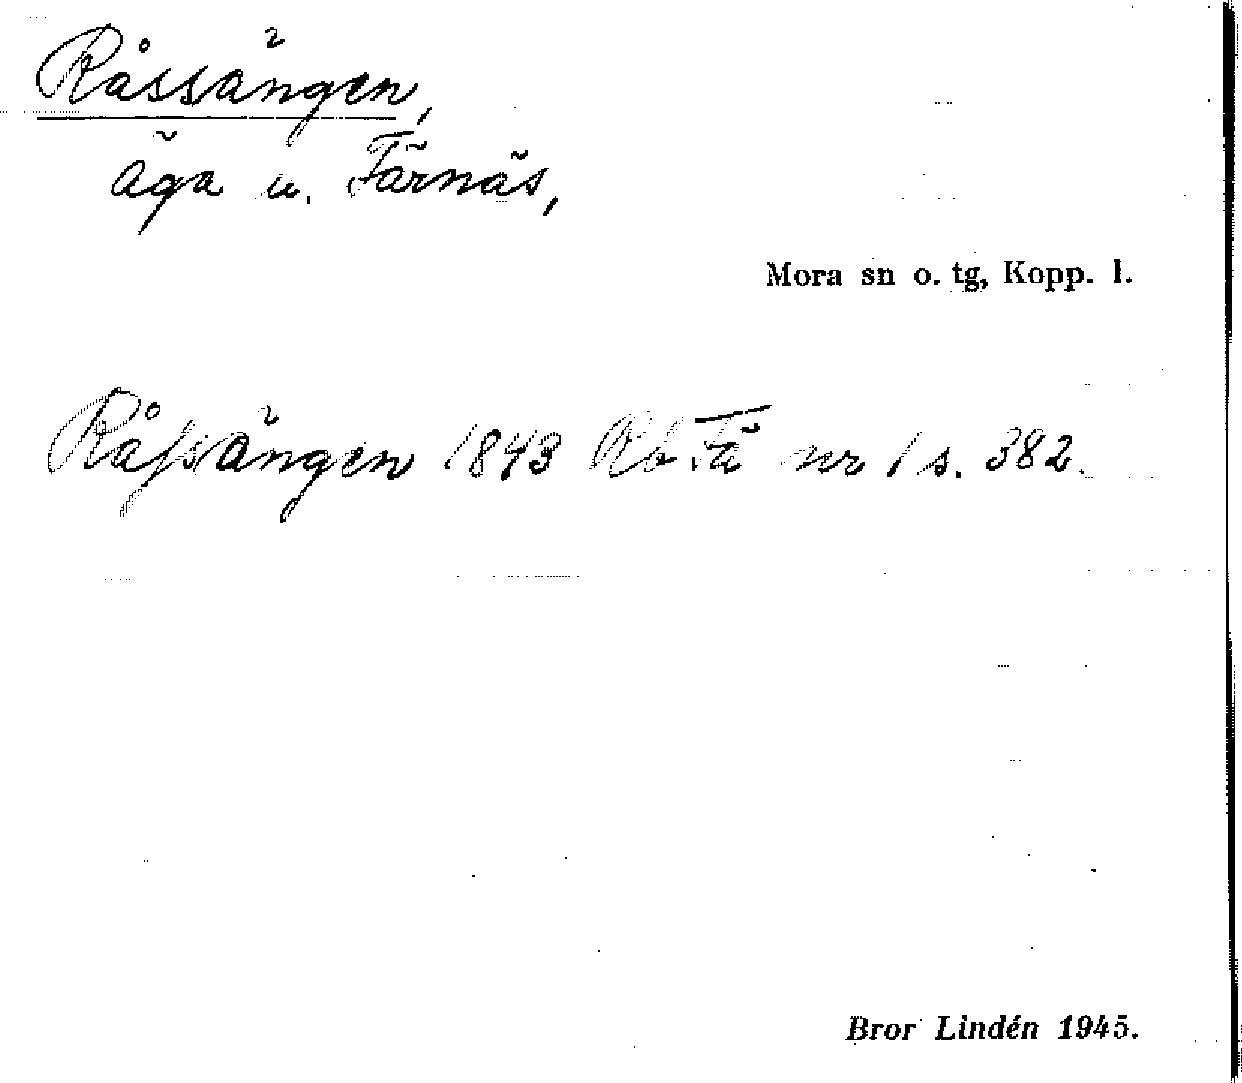 Råssängen,
äga u. Färnäs,
Mora sn o. tg, Kopp. l.
Råſsängen 1843 Rb Fä nr 1 s. 382.
Bror Lindén 1945.